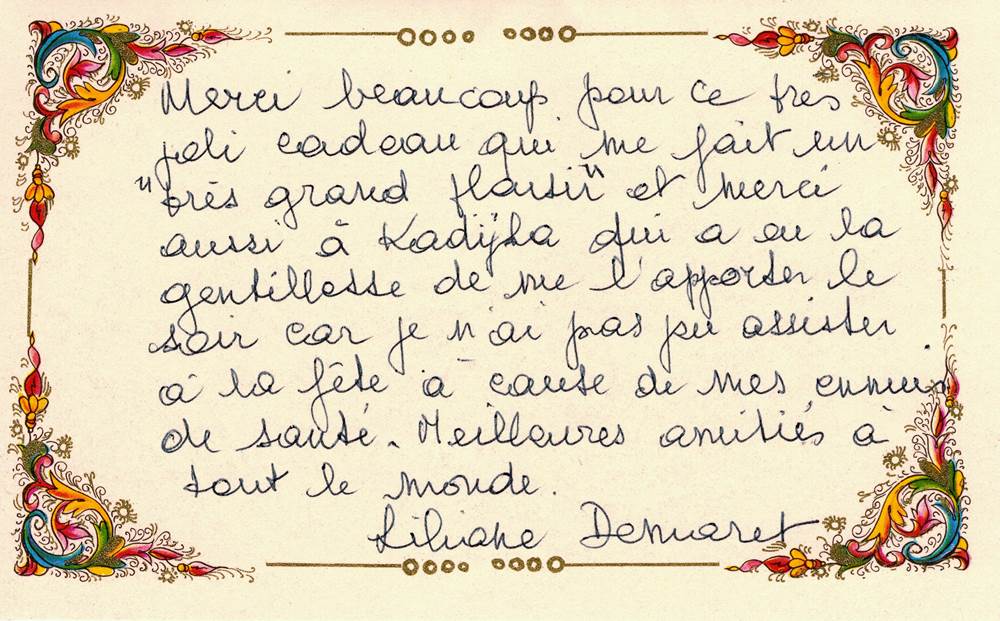 Merci beaucoup pour ce tres
joli cadeau qui me fait un
"très grand plaisir" et merci
aussi à Kadijha qui a eu la
gentillesse de me l'apporter le
soir car je n'ai pas pu assister
à la fête à cause de mes ennuis
de santé. Meilleures amitiés à
tout le monde.
Liliane Desmaret